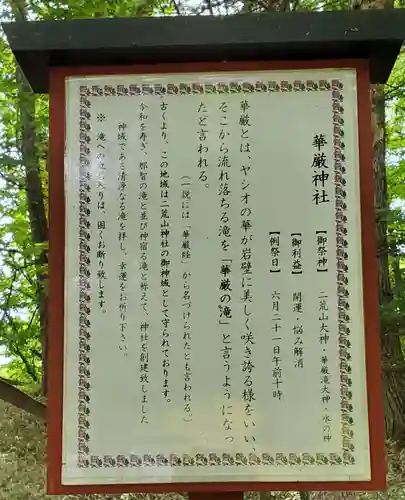 華厳神社
【御祭神】 二荒山大神・華厳滝大神・水の神
【御利益】 開運・悩み解消
【例祭日】 六月二十一日午前十時
華厳とは、ヤシオの華が岩壁に美しく咲き誇る様をいい、
そこから流れ落ちる滝を「華厳の滝」と言うようになっ
たと言われる。
(一説には「華厳経」から名づけられたとも言われる。)
古くより、この地域は二荒山神社の御神域として守られております。
令和を寿ぎ、那智の滝と並び神宿る滝と称えて、神社を創建致しました
神域であると清浄なる滝を拝し、幸運をお祈り下さい。
※ 滝への立ち入りは、固くお断り致します。